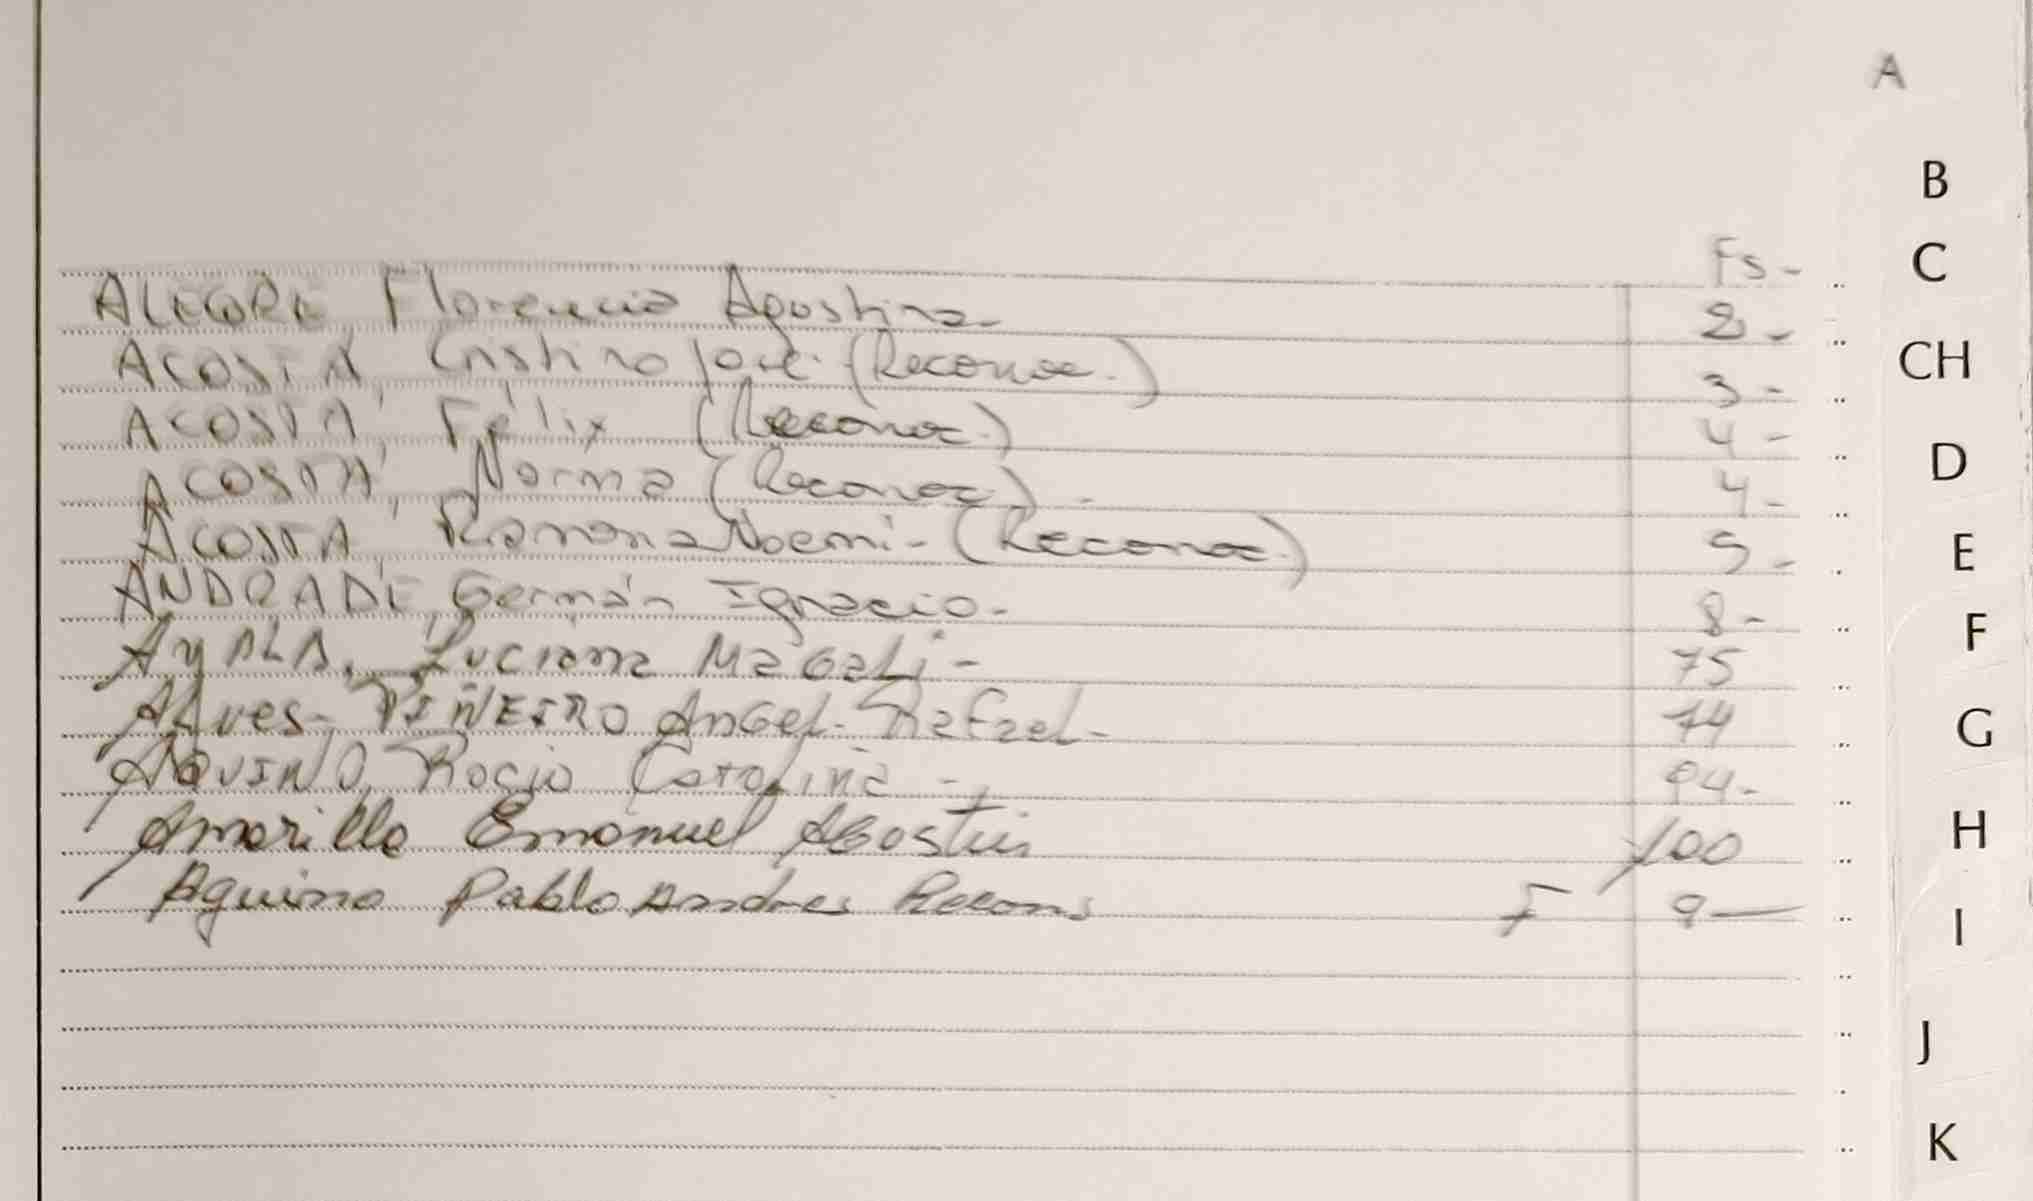 A
B
C
CH
D
E
F
G
H
I
J
K
Fs-
ALEGRE, Florencia Agostina- 2-
ACOSTA, Cristino José (Reconoc.) 3-
ACOSTA, Félix (Reconoc.) 4-
ACOSTA, Norma (Reconoc) - 4-
ACOSTA, Ramona Noemi- (Reconoc.) 5-
ANDRADE, Germán Ignacio- 8-
AyALA, Luciana MaGaLi- 75
ALves- PIÑEIRO AnGeL Rafael-
AQUINO, Rocio Catalina -
Amarilla Emanuel AGostin 100
Aquino Pablo Andres F 9-